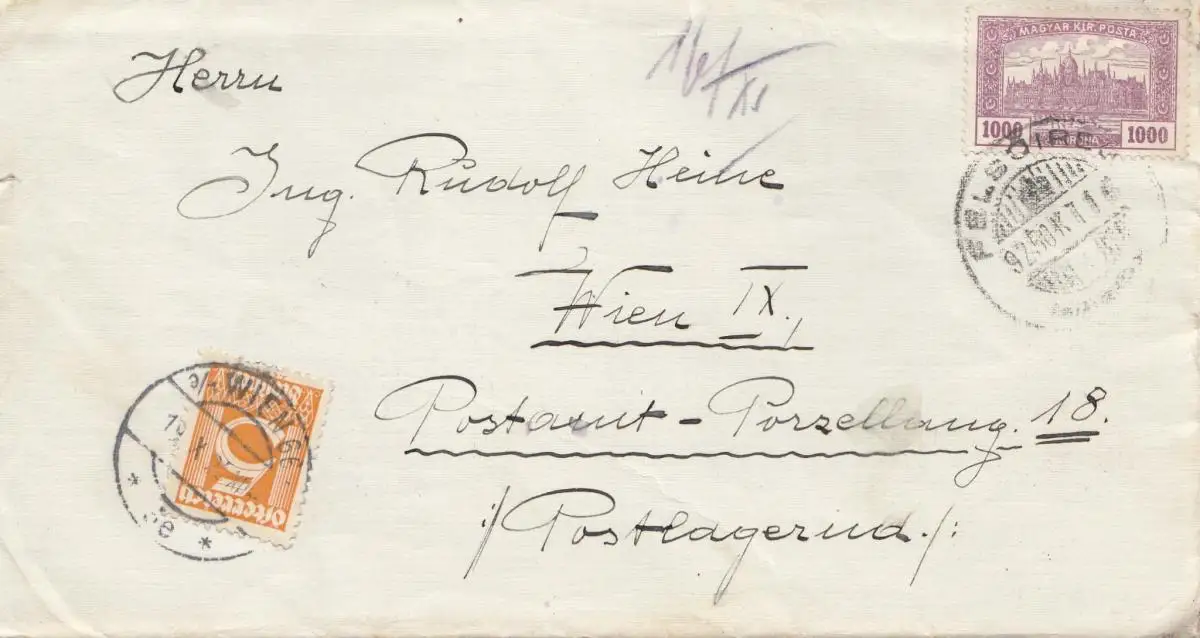 MAGYAR KIR. POSTA
1000 KORONA 1000
Herrn
Ing. Rudolf Heine
Wien IX.,
Postamt - Porzellang. 18.
/: Postlagernd. :/
WIEN
Österreich